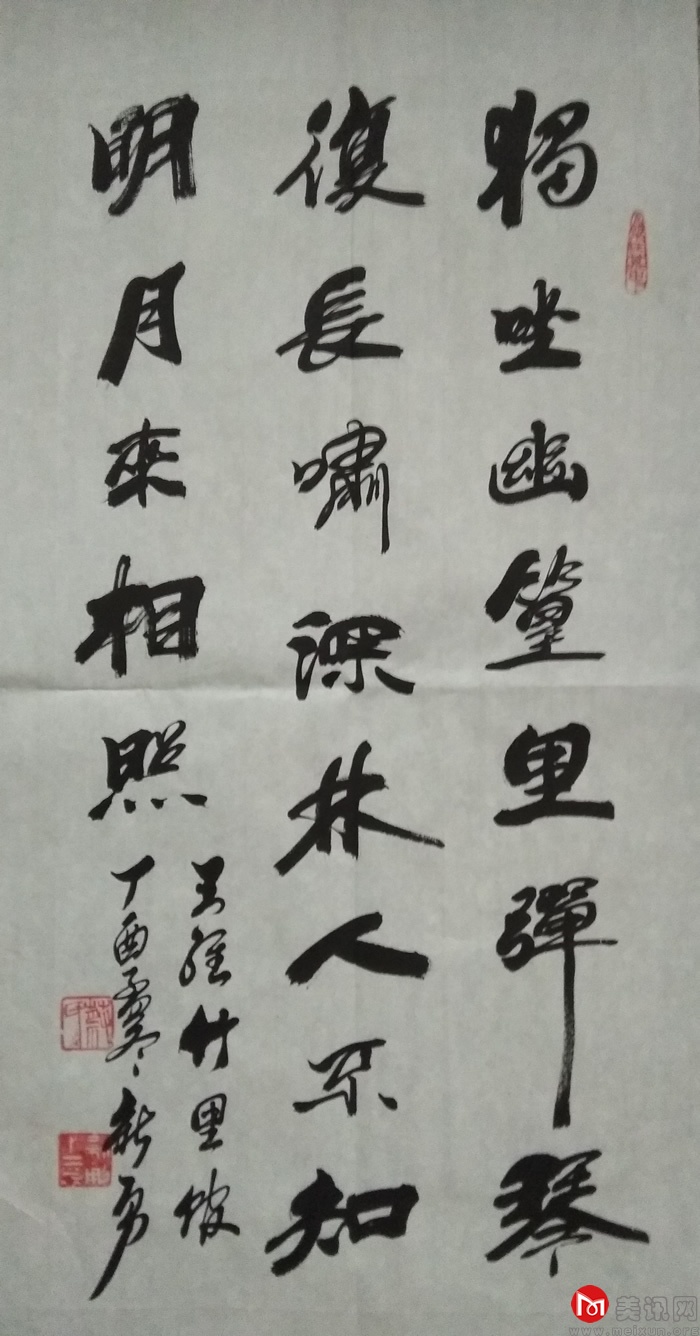 獨坐幽篁里彈琴
復長嘯深林人不知
明月來相照
王維竹里館
丁酉 新勇
美讯网
www.meixun.org